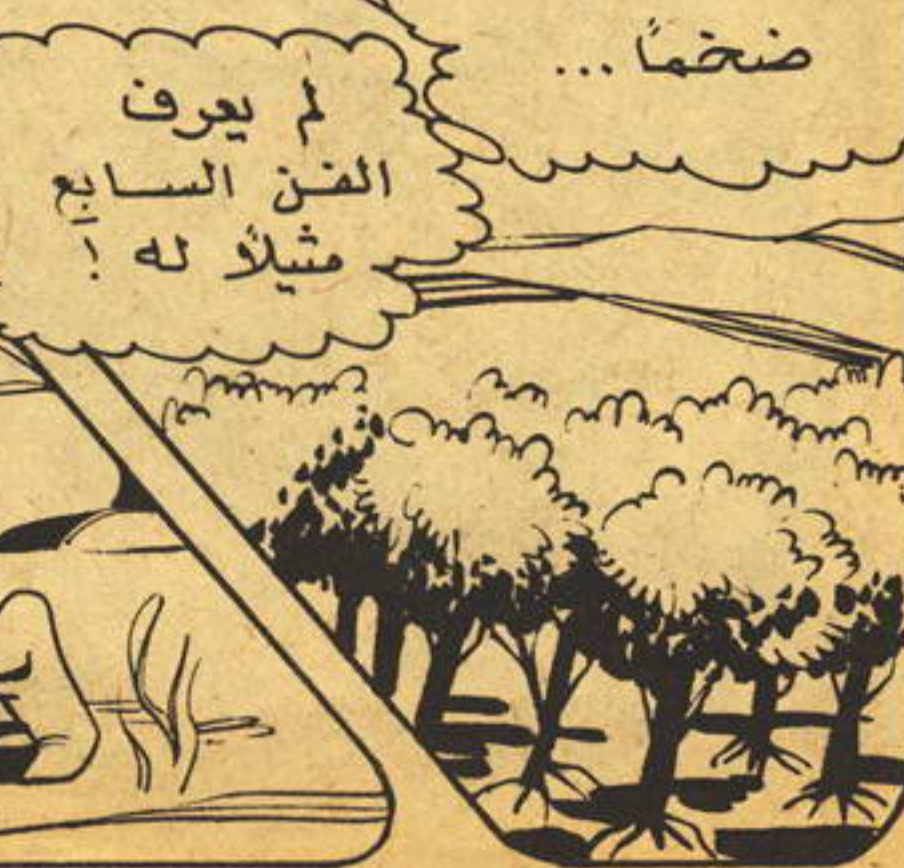 ضخمًا ...
لم يعرف
الفن السابع
مثيلًا له !